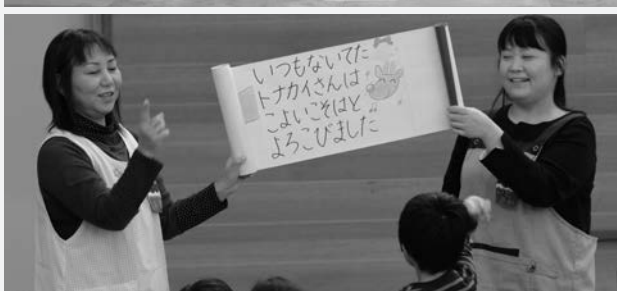 いつもないてた
トナカイさんは
こよいこそはと
よろこびました